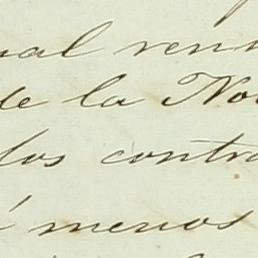 ual ren
de la No
los contra
menos